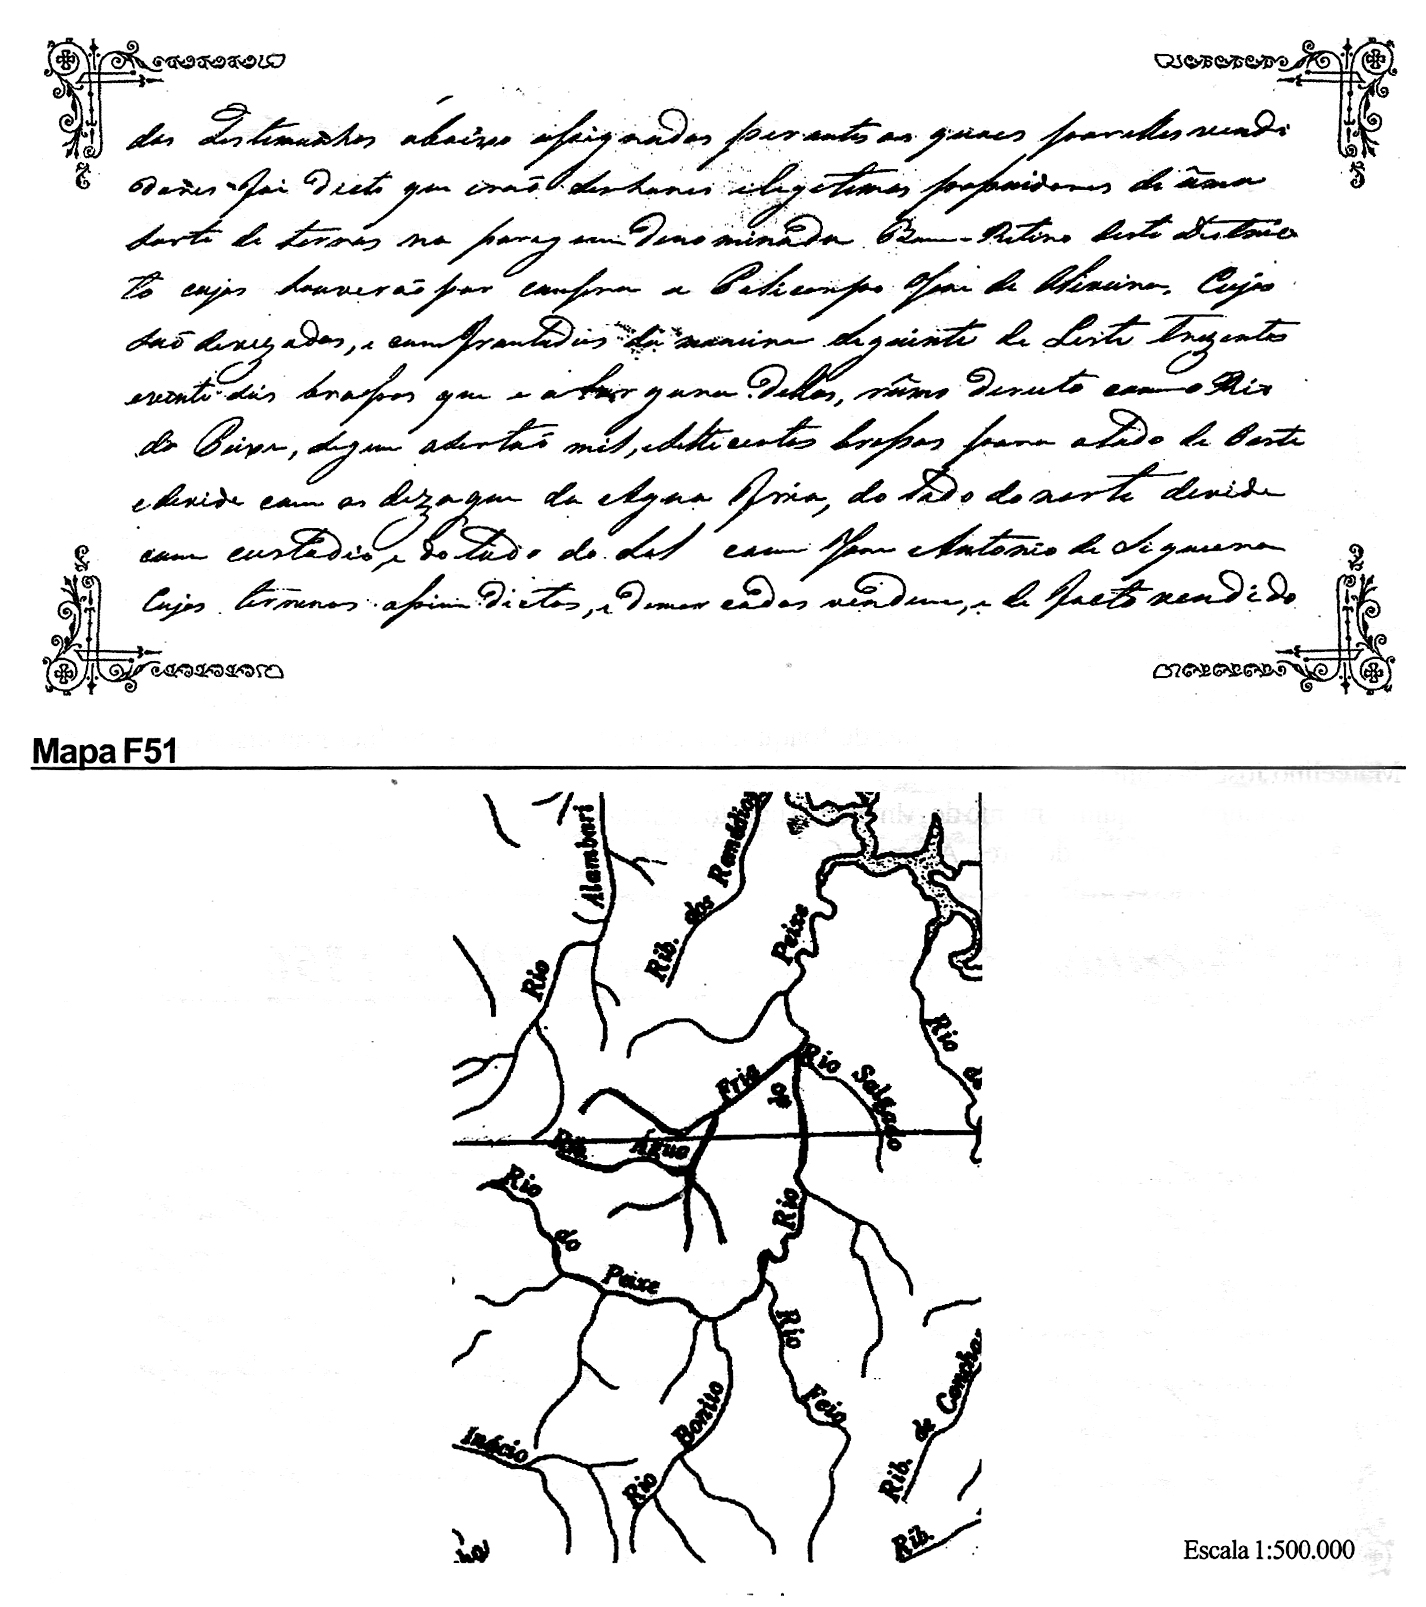 das Testemunhas abaixo assignadas perante as quaes por elles vendi
dores foi dicto que erão senhores e legetimos possuidores de uma
sorte de terras na paragem denominada Bom-Retiro deste Destric
to cujas houverão por compra a Policarpo José de Oliveira, Cujas
são devezadas, e confrontadas da maneira seguinte de Leste trezentas
e vinte duas braças que e a largura dellas, rumo direito com o Rio
do Peixe, segue a sertão mil, e settecentas braças para o lado de Oeste
e devide com as dezagua da Agua Fria, do lado do norte devide
com custodio, e do lado do Sul com José Antonio de Siqueira
Cujos terrenos assim dictos, e demarcados vendem, e de facto vendido
Mapa F51
Alambari
Rio
Rib. dos Remédios
Peixe
Rio do
Fria
do
Rio Salgado
Rib. Água
Rio do Peixe
Rio
Rio Feio
Rio Bonito
Inácio
Rib. de Concha
Rib.
Escala 1:500.000